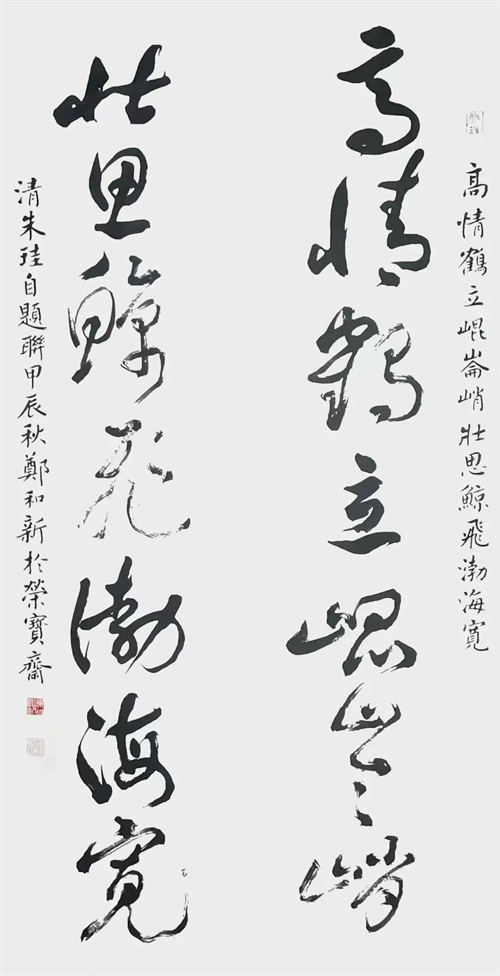 髙情鶴立崐崙峭壯思鯨飛渤海寬
髙情鶴立崐崙峭
壯思鯨飛渤海寬
清朱珪自題聯甲辰秋鄭和新於榮寶齋